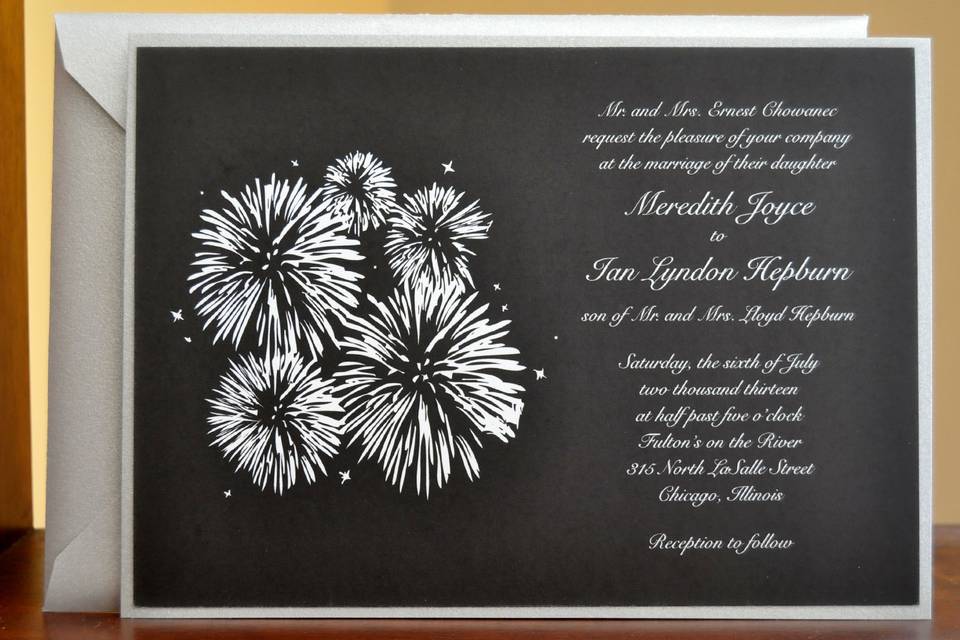 Mr. and Mrs. Ernest Chowanec
request the pleasure of your company
at the marriage of their daughter
Meredith Joyce
to
Ian Lyndon Hepburn
son of Mr. and Mrs. Lloyd Hepburn
Saturday, the sixth of July
two thousand thirteen
at half past five o'clock
Fulton's on the River
315 North LaSalle Street
Chicago, Illinois
Reception to follow